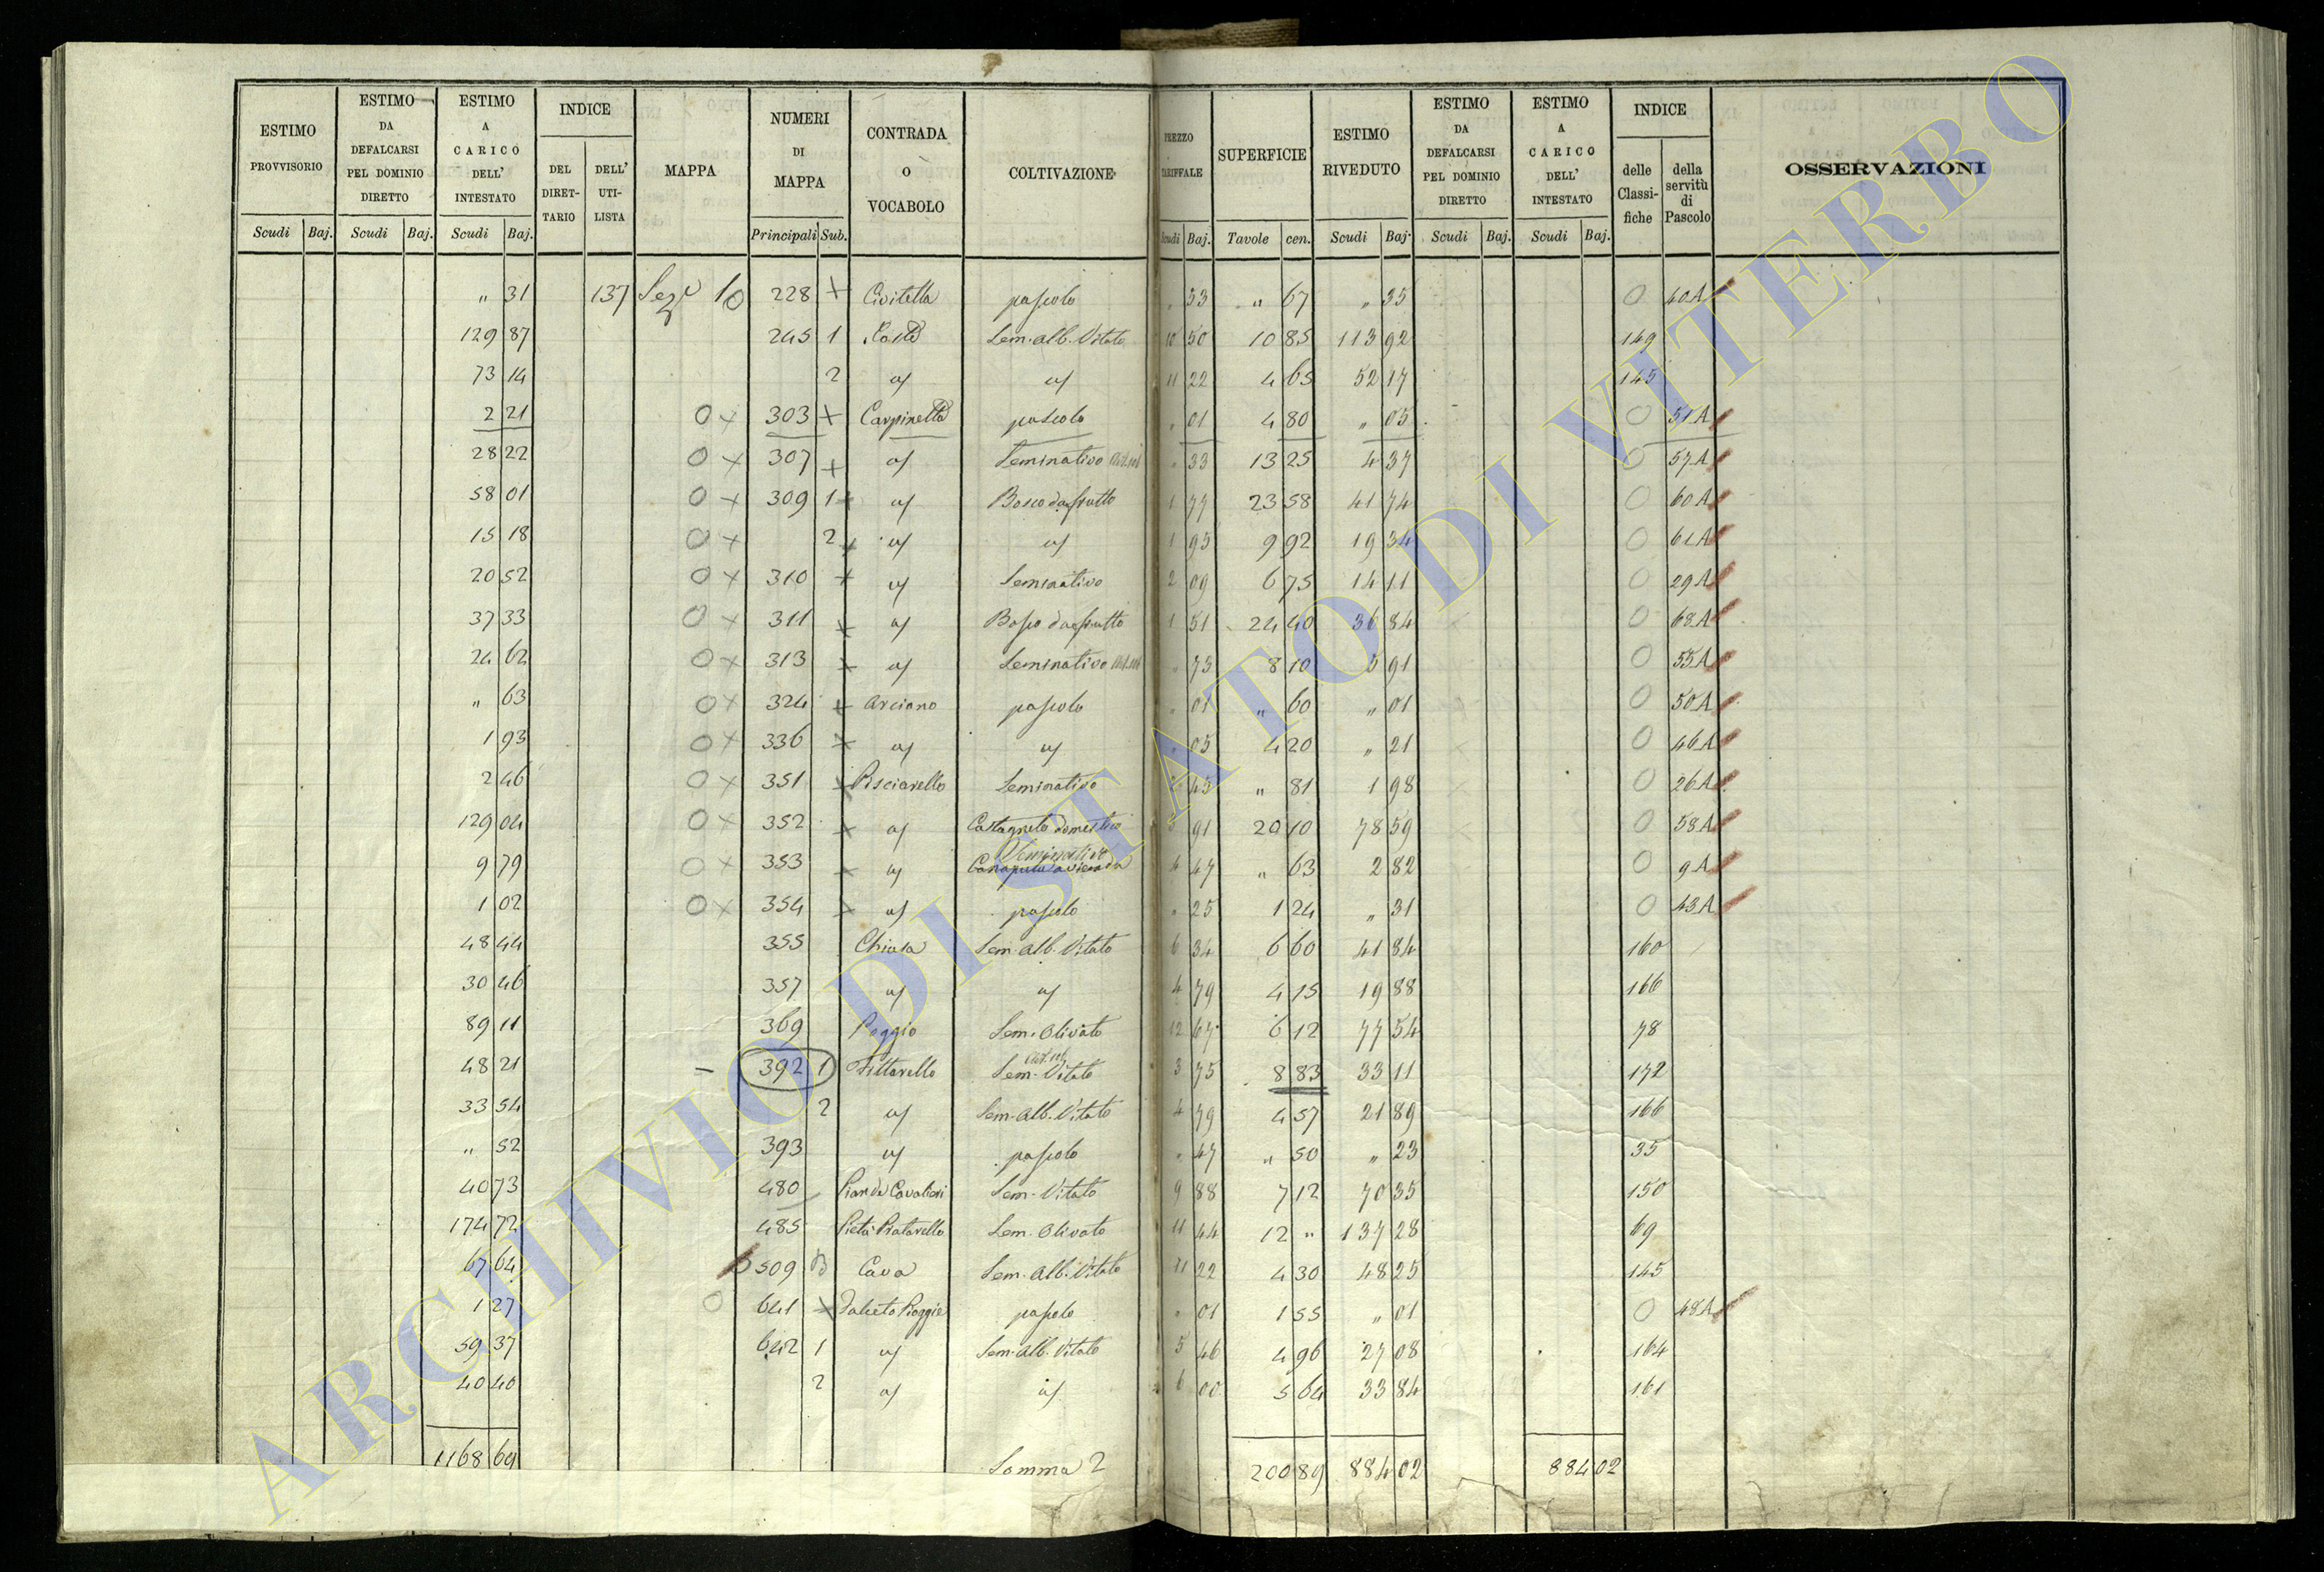 ESTIMO PROVVISORIO | ESTIMO DA DEFALCARSI PEL DOMINIO DIRETTO | ESTIMO A CARICO DELL' INTESTATO | INDICE DEL DIRETTARIO | DELL' UTILISTA | MAPPA | NUMERI DI MAPPA | CONTRADA O VOCABOLO | COLTIVAZIONE | PREZZO TARIFFALE | SUPERFICIE | ESTIMO RIVEDUTO | ESTIMO DA DEFALCARSI PEL DOMINIO DIRETTO | ESTIMO A CARICO DELL' INTESTATO | INDICE delle Classifiche | della servitù di Pascolo | OSSERVAZIONI
Scudi | Baj. | Scudi | Baj. | Scudi | Baj. | Principali | Sub. | Scudi | Baj. | Tavole | cen. | Scudi | Baj. | Scudi | Baj. | Scudi | Baj.
" 31 | 137 | Sez. 10 | 228 + | Civitella | pascolo | " 53 | " 67 | " 35 | 0 | 40A
129 87 | 245 1 | Costa | Sem. alb. Vitato | 10 50 | 10 85 | 113 92 | 149
73 14 | 2 | a/ | a/ | 11 22 | 4 65 | 52 17 | 145
2 21 | 0 x | 303 + | Carpinella | pascolo | " 01 | 4 80 | " 05 | 0 | 51A
28 22 | 0 x | 307 + | a/ | Seminativo | " 33 | 13 25 | 4 37 | 0 | 57A
58 01 | 0 x | 309 1 + | a/ | Bosco da frutto | 1 77 | 23 58 | 41 74 | 0 | 60A
15 18 | 0 x | 2 + | a/ | a/ | 1 95 | 9 92 | 19 34 | 0 | 61A
20 52 | 0 x | 310 + | a/ | Seminativo | 2 09 | 6 75 | 14 11 | 0 | 29A
37 33 | 0 x | 311 + | a/ | Bosco da frutto | 1 51 | 24 40 | 36 84 | 0 | 68A
24 62 | 0 x | 313 + | a/ | Seminativo | " 73 | 8 10 | 5 91 | 0 | 55A
" 63 | 0 x | 324 + | Arciano | pascolo | " 01 | " 60 | " 01 | 0 | 50A
1 93 | 0 x | 336 + | a/ | a/ | " 05 | 4 20 | " 21 | 0 | 46A
2 46 | 0 x | 351 + | Pisciarello | Seminativo | 2 45 | " 81 | 1 98 | 0 | 26A
129 04 | 0 x | 352 + | a/ | Castagneto domestico | 3 91 | 20 10 | 78 59 | 0 | 58A
Seminativo
9 79 | 0 x | 353 + | a/ | 4 47 | " 63 | 2 82 | 0 | 9A
1 02 | 0 x | 354 + | a/ | pascolo | " 25 | 1 24 | " 31 | 0 | 43A
48 44 | 355 | Chiusa | Sem. alb. Vitato | 6 34 | 6 60 | 41 84 | 160
30 46 | 357 | a/ | a/ | 4 79 | 4 15 | 19 88 | 166
89 11 | 369 | Poggio | Sem. Olivato | 12 67 | 6 12 | 77 54 | 78
48 21 | – | 392 1 | Sem. Vitato | 3 75 | 8 83 | 33 11 | 172
33 54 | 2 | a/ | Sem. Alb. Vitato | 4 79 | 4 57 | 21 89 | 166
" 52 | 393 | a/ | pascolo | " 47 | " 50 | " 23 | 35
40 73 | 480 | Pian de Cavalieri | Sem. Vitato | 9 88 | 7 12 | 70 35 | 150
174 72 | 485 | Pietà Pratarello | Sem. Olivato | 11 44 | 12 " | 137 28 | 69
67 64 | 509 B | Cava | Sem. Alb. Vitato | 11 22 | 4 30 | 48 25 | 145
1 27 | 0 | 641 x | pascolo | " 01 | 1 55 | " 01 | 0 | 48A
59 37 | 642 1 | a/ | Sem. Alb. Vitato | 5 46 | 4 96 | 27 08 | 164
40 40 | 2 | a/ | a/ | 6 00 | 5 64 | 33 84 | 161
1168 69 | Somma 2 | 200 89 | 884 02 | 884 02
ARCHIVIO DI STATO DI VITERBO